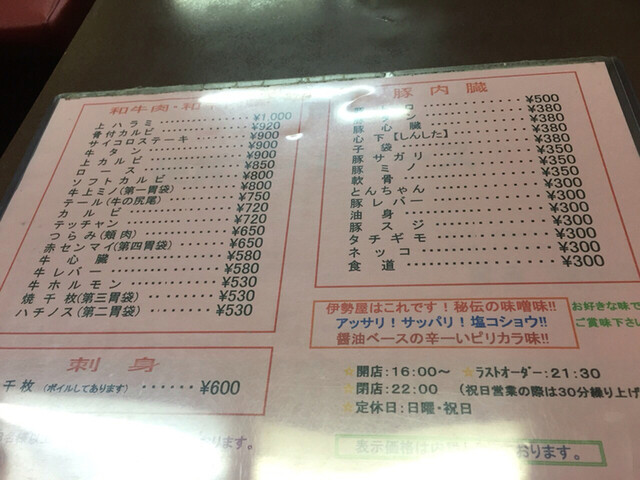 和牛肉・和
上ハラミ ¥1,000
骨付カルビ ¥920
サイコロステーキ ¥900
牛タン ¥900
上カルビ ¥900
ロース ¥850
ソフトカルビ ¥800
牛上ミノ(第一胃袋) ¥800
テール(牛の尻尾) ¥750
カルビ ¥720
テッチャン ¥720
つらみ(頬肉) ¥650
赤センマイ(第四胃袋) ¥650
牛心臓 ¥580
牛レバー ¥580
牛ホルモン ¥530
焼千枚(第三胃袋) ¥530
ハチノス(第二胃袋) ¥530
刺身
千枚(ボイルしてあります) ¥600
豚内臓
¥500
タン ¥380
豚心臓 ¥380
心下【しんした】 ¥380
子袋 ¥350
豚サガリ ¥350
豚ミノ ¥350
軟骨 ¥300
とんちゃん ¥300
豚レバー ¥300
油身 ¥300
豚スジ ¥300
タチギモ ¥300
ネッコ ¥300
食道 ¥300
伊勢屋はこれです!秘伝の味噌味!!
アッサリ!サッパリ!塩コショウ!!
醤油ベースの辛ーいピリカラ味!!
お好きな味で
ご賞味下さい
☆開店:16:00~ ☆ラストオーダー:21:30
☆閉店:22:00 (祝日営業の際は30分繰り上げ
☆定休日:日曜・祝日
表示価格は
おります。